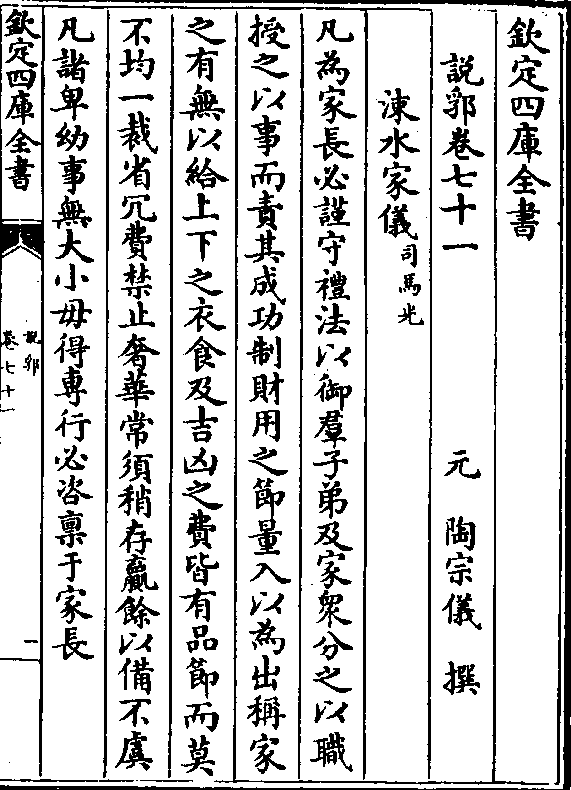 欽定四庫全書
說郛卷七十一　元　陶宗儀　撰
涑水家儀司馬光
凡為家長必謹守禮法以御羣子弟及家衆分之以職
授之以事而責其成功制財用之節量入以為出稱家
之有無以給上下之衣食及吉凶之費皆有品節而莫
不均一裁省冗費禁止奢華常須稍存贏餘以備不虞
凡諸卑幼事無大小毋得專行必咨禀于家長
欽定四庫全書
說郛
卷七十一
一